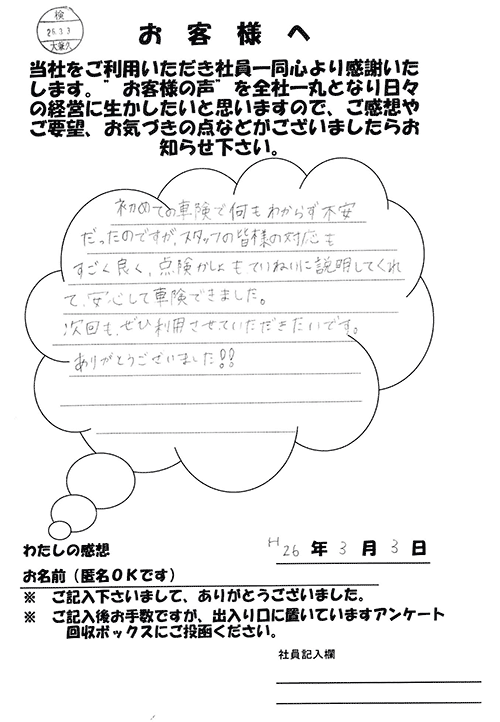 検
26.3.3
大塚久
お客様へ
当社をご利用いただき社員一同心より感謝いた
します。”お客様の声”を全社一丸となり日々
の経営に生かしたいと思いますので、ご感想や
ご要望、お気づきの点などがございましたらお
知らせ下さい。
初めての車険で何もわからず不安
だったのですが、スタッフの皆様の対応も
すごく良く、点険かしょもていねいに説明してくれ
て、安心して車険できました。
次回も、ぜひ利用させていただきたいです。
ありがとうございました!!
わたしの感想
H26年3月3日
お名前（匿名OKです）
※ ご記入下さいまして、ありがとうございました。
※ ご記入後お手数ですが、出入り口に置いていますアンケート
回収ボックスにご投函ください。
社員記入欄